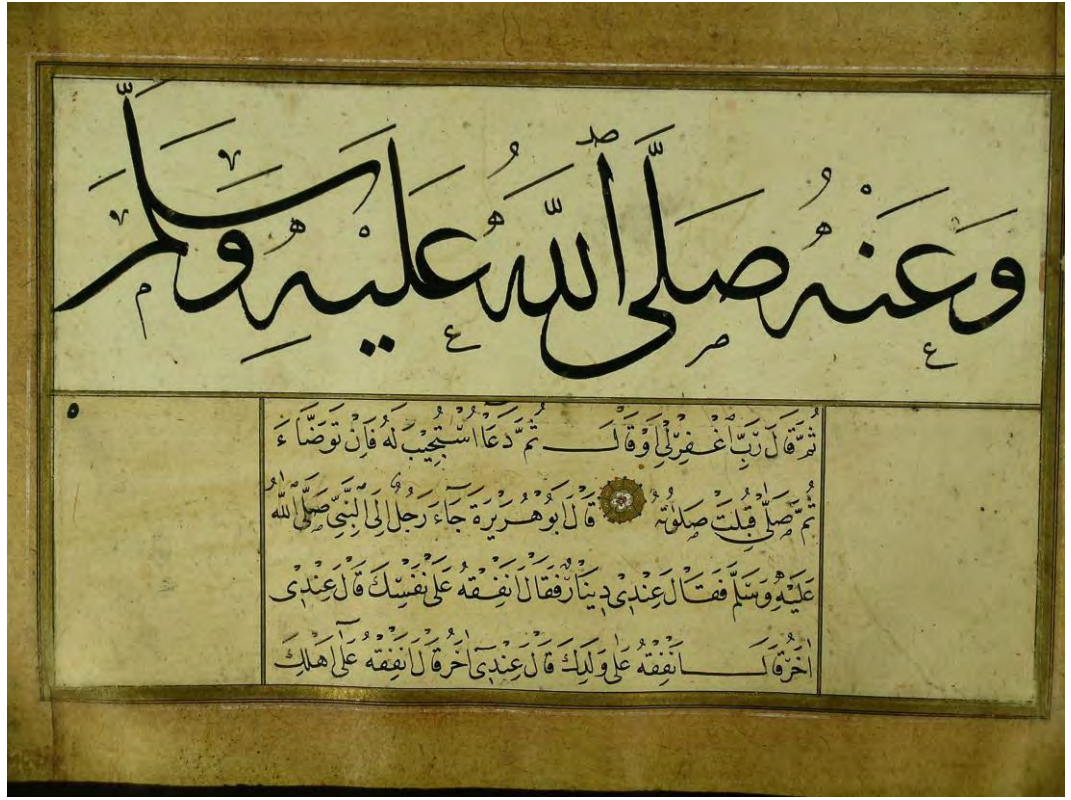 وَعَنْهُ صَلَّى اللّٰهُ عَلَيْهِ وَسَلَّمَ
ثُمَّ قَالَ رَبِّ اغْفِرْ لِي اَوْ قَالَ ثُمَّ دَعَا اسْتُجِيبَ لَهُ فَاِنْ تَوَضَّاءَ
ثُمَّ صَلّٰى قُبِلَتْ صَلٰوتُهُ قَالَ اَبُو هُرَيْرَةَ جَاءَ رَجُلٌ اِلَى النَّبِيِّ صَلَّى اللّٰهُ
عَلَيْهِ وَسَلَّمَ فَقَالَ عِنْدِي دِينَارٌ فَقَالَ اَنْفِقْهُ عَلٰى نَفْسِكَ قَالَ عِنْدِي
اٰخَرُ قَالَ اَنْفِقْهُ عَلٰى وَلَدِكَ قَالَ عِنْدِي اٰخَرُ قَالَ اَنْفِقْهُ عَلٰى اَهْلِكَ